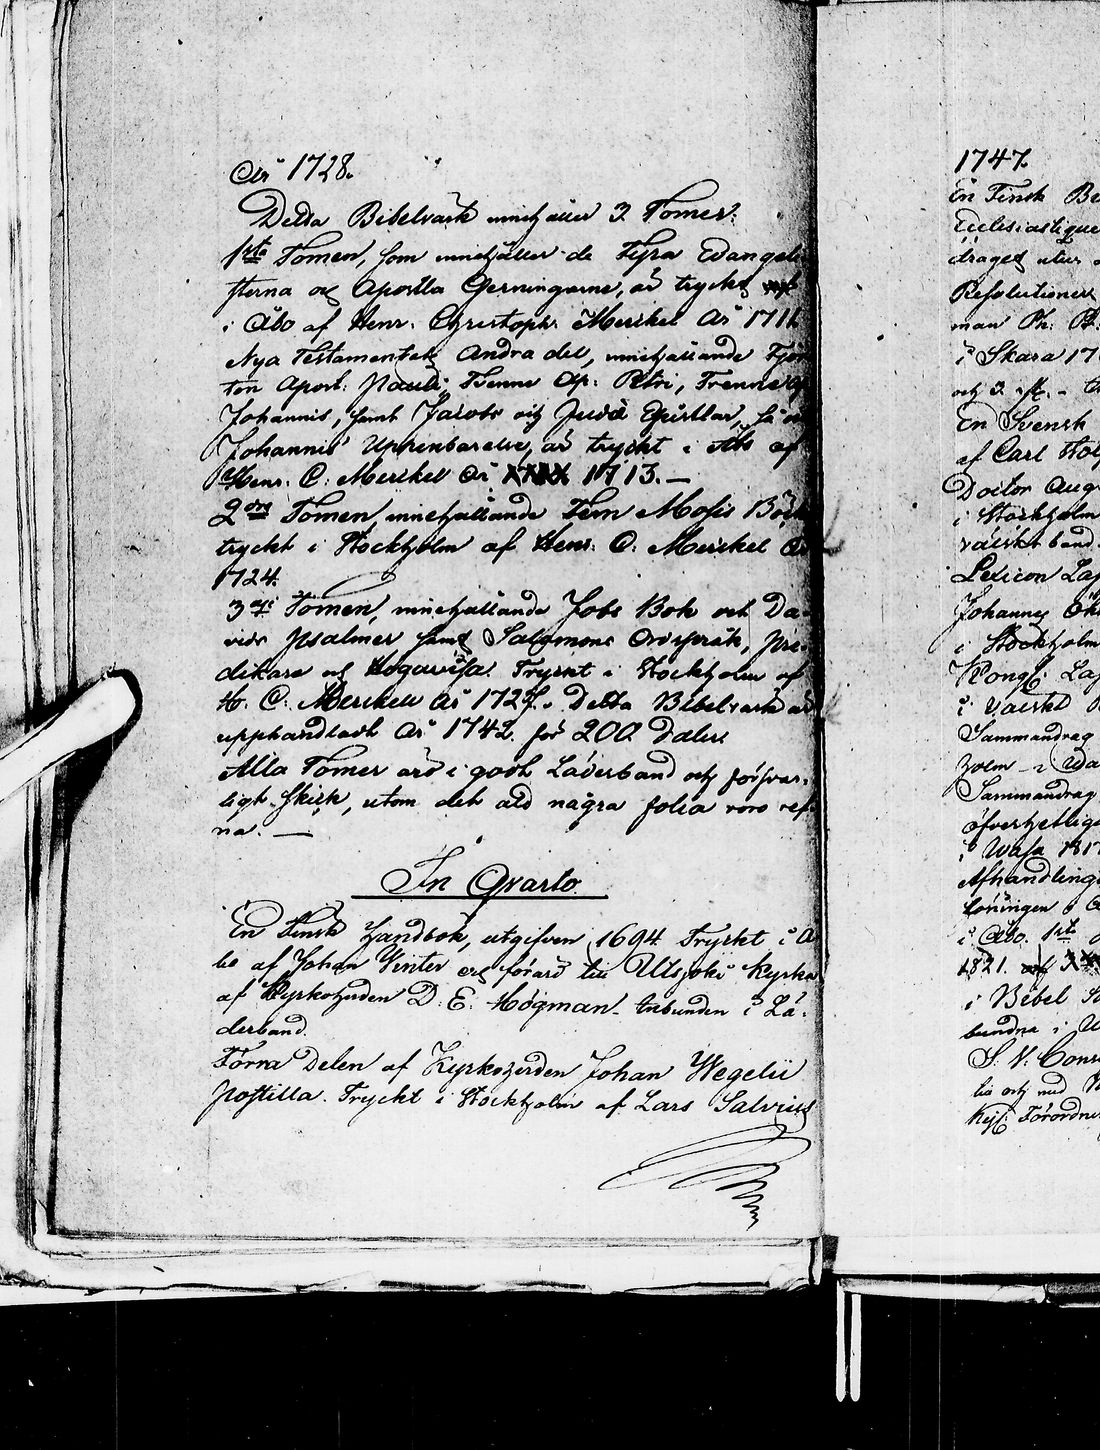 År 1728.
Detta Bibelvärk innehåller 3. Tomer.
1sta Tomen, som innehåller de Fyra Evangeli
sterna och Apostla Gerningarne, är tryckt
i Åbo af Henr. Christoph: Merckel År 1711.
Nya Testamentets Andra del, innehållande Fjor
ton Apost: Pauli, Tvenne Ap: Petri, Trenne Ap
Johannis, samt Jacobs och Judä Epistlar, så
Johannis Uppenbarelse, är tryckt i Åbo af
Henr. C. Merckel År 1713. —
2dra Tomen, innehållande Fem Mosis Böck
tryckt i Stockholm af Henr. C. Merckel År
1724.
3dje Tomen, innehållande Jobs Bok och Da-
vids Psalmer samt Salomons Ordspråk, Pre-
dikare och Högavisa. Tryckt i Stockholm af
H. C. Merckell År 1728. Detta Bibelvärk är
upphandladt År 1742. för 200. Daler.
Alla Tomer äro i godt Läderband och försvar-
ligt skick, utom det att några folia voro ref-
na. —
In Qvarto.
En Finsk Handbok, utgifven 1694 Tryckt i Å
bo af Johan Winter och förärd till Utsjoki Kyrka
af Kyrkoherden D. E. Högman. Inbunden i Lä-
derband.
Förra Delen af Kyrkoherden Johan Wegelii
Postilla. Tryckt i Stockholm af Lars Salvius
1747.
En Finsk
Ecclesiastique
draget utur
Resolutioner
man Ph:
i Skara
och 3
En Svensk
af Carl
Doctor
i Stockholm
välskt band.
Lexicon
Johannes
i Stockholm
Kongl:
i Välskt
Sammandrag
holm
Sammandrag
öfverhetliga
i Wasa
Afhandling
i Åbo. 1sta
1821.
i Bibel
bundne i
S. V.
lia och med
Kejs: Förordn